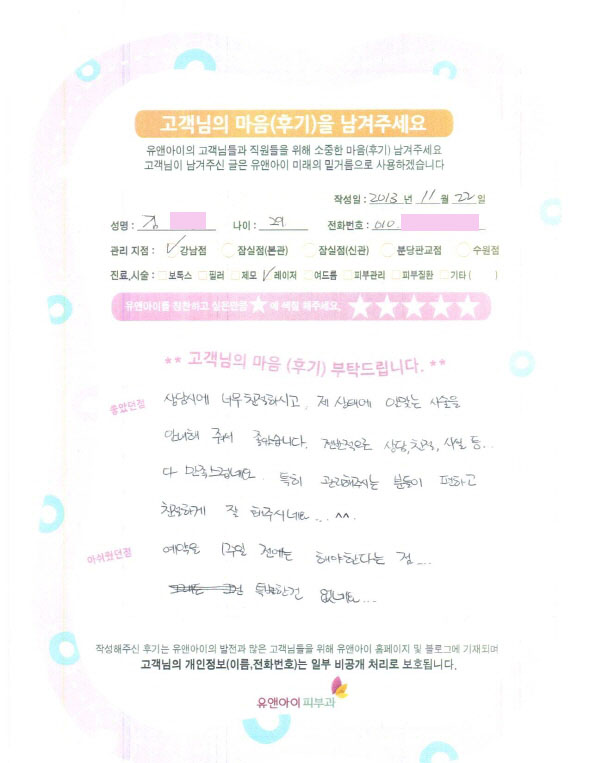 고객님의 마음(후기)을 남겨주세요
유앤아이의 고객님들과 직원들을 위해 소중한 마음(후기) 남겨주세요
고객님이 남겨주신 글은 유앤아이 미래의 밑거름으로 사용하겠습니다
작성일 : 2013 년 11 월 22 일
성명 : 김 나이 : 29. 전화번호 : 010
관리 지점 : 강남점 잠실점(본관) 잠실점(신관) 분당판교점 수원점
진료,시술 : 보톡스 필러 제모 레이저 여드름 피부관리 피부질환 기타 ( )
유앤아이를 칭찬하고 싶은만큼 ★ 에 색칠 해주세요. ★★★★★
** 고객님의 마음 (후기) 부탁드립니다. **
좋았던점 상담시에 너무 친절하시고, 제 상태에 알맞는 시술을
안내해 주셔서 좋았습니다. 전반적으로 상담, 친절, 시설 등..
다 만족스럽네요. 특히 관리해주시는 분들이 편하고
친절하게 잘 해주시네요... ^^.
아쉬웠던점 예약은 1주일 전에는 해야한다는 점...
특별한건 없네요...
작성해주신 후기는 유앤아이의 발전과 많은 고객님들을 위해 유앤아이 홈페이지 및 블로그에 기재되며
고객님의 개인정보(이름,전화번호)는 일부 비공개 처리로 보호됩니다.
유앤아이 피부과